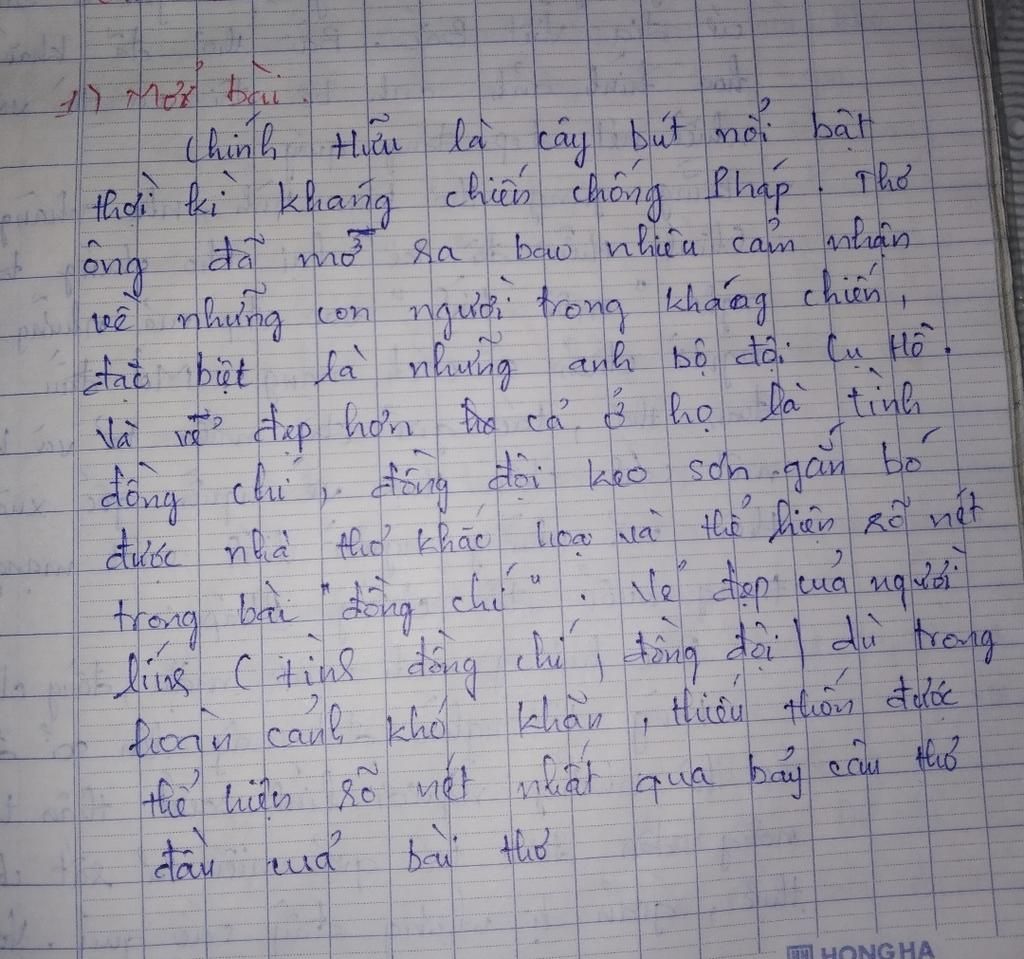 1) Mở bài.
Chính Hữu là cây bút nổi bật
thời kì kháng chiến chống Pháp. Thơ
ông đã mở ra bao nhiêu cảm nhận
về những con người trong kháng chiến,
đặc biệt là những anh bộ đội Cụ Hồ.
Và vẻ đẹp hơn cả ở họ là tình
đồng chí, đồng đội keo sơn gắn bó
được nhà thơ khắc họa và thể hiện rõ nét
trong bài "đồng chí". Vẻ đẹp của người
lính (tình đồng chí, đồng đội) dù trong
hoàn cảnh khó khăn, thiếu thốn được
thể hiện rõ nét nhất qua bảy câu thơ
đầu của bài thơ
HONG HA